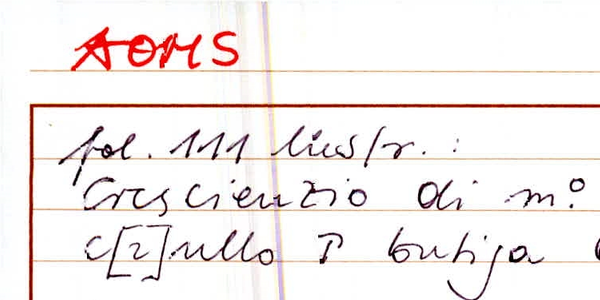 AOMS
fol. 111 lius/r. :
Crescienzio di m.º
c[2]ullo P butiga